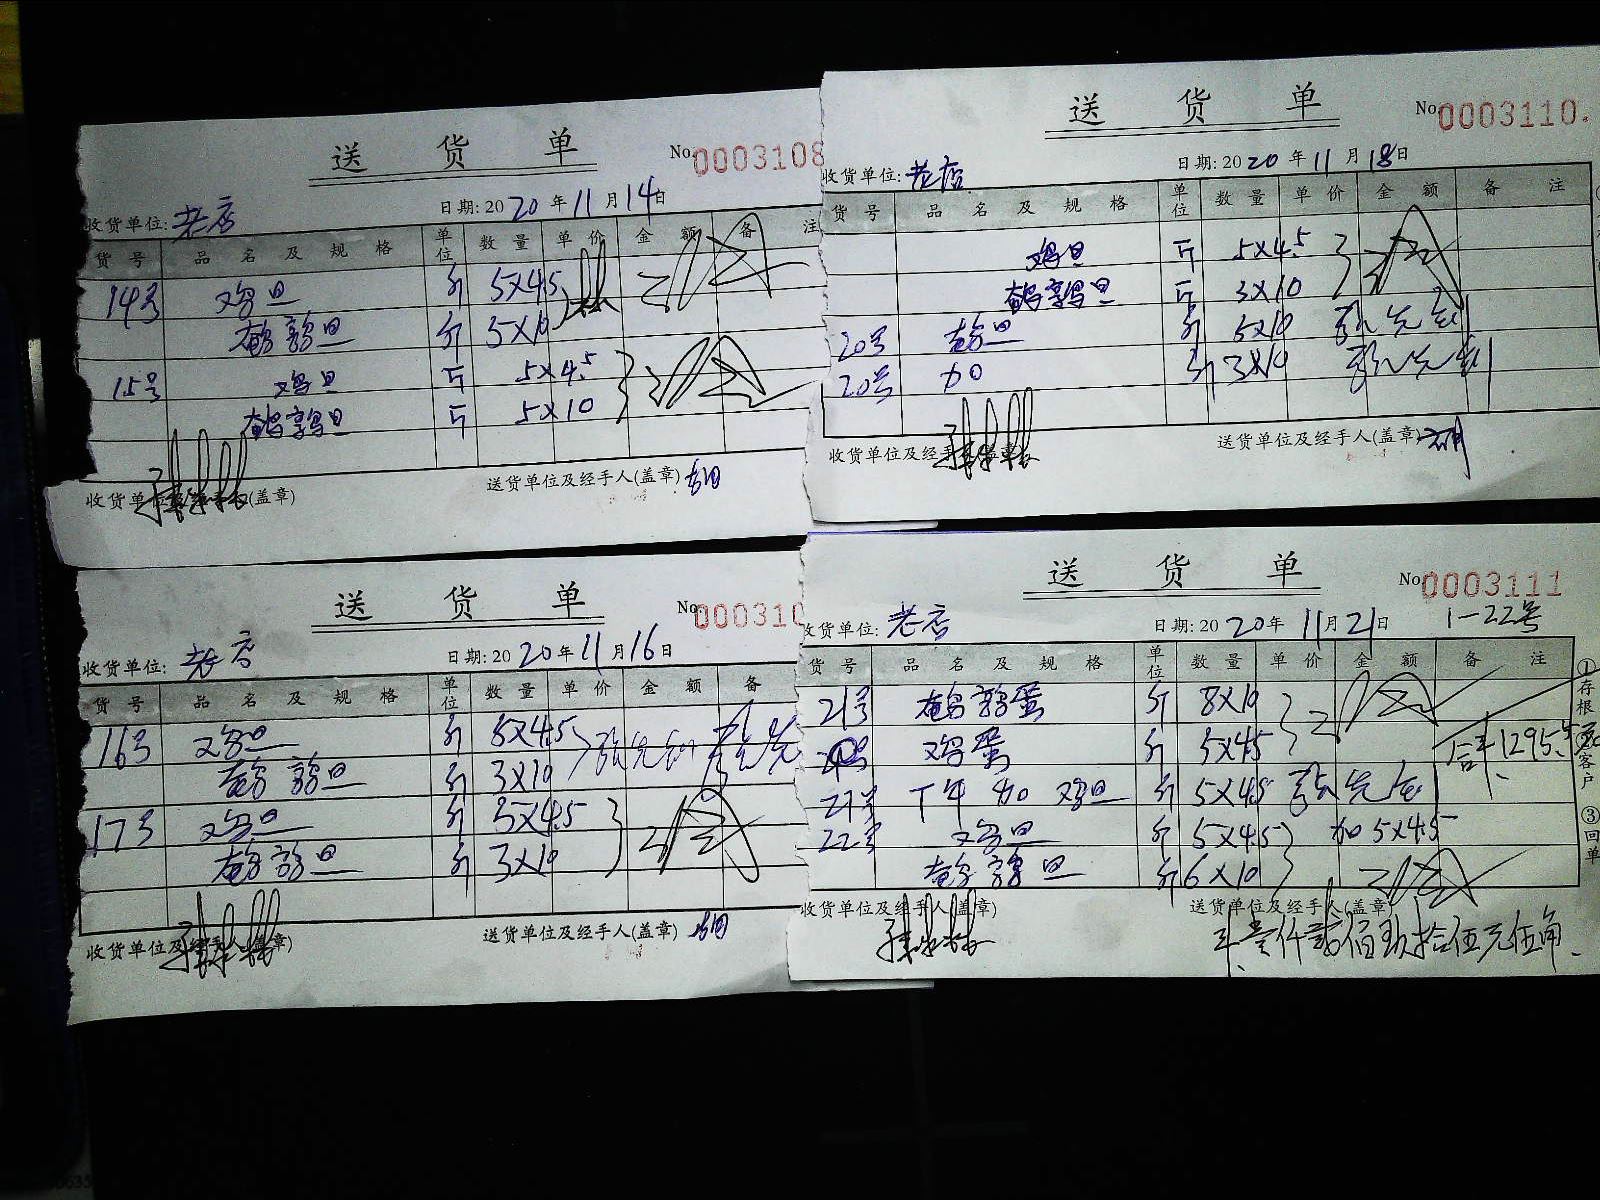 送货单
No. 0003108
收货单位: 老店
日期: 2020年11月14日
货号 品名及规格 单位 数量 单价 金额 备注
14号 鸡旦 斤 5×4.5
鹌鹑旦 斤 5×10
15号 鸡旦 斤 5×4.5
鹌鹑旦 斤 5×10
收货单位及经手人(盖章) 送货单位及经手人(盖章)
送货单
No. 0003110
收货单位: 老店
日期: 2020年11月18日
货号 品名及规格 单位 数量 单价 金额 备注
鸡旦 斤 5×4.5
鹌鹑旦 斤 3×10
20号 鹑旦 斤 5×10
20号 加 斤 3×10
收货单位及经手人(盖章) 送货单位及经手人(盖章)
送货单
No. 000310
收货单位: 老店
日期: 2020年11月16日
货号 品名及规格 单位 数量 单价 金额 备
16号 鸡旦 斤 5×4.5
鹌鹑旦 斤 3×10
17号 鸡旦 斤 5×4.5
鹌鹑旦 斤 3×10
收货单位及经手人(盖章) 送货单位及经手人(盖章)
送货单
No. 0003111
收货单位: 老店
日期: 2020年11月21日
1-22号
货号 品名及规格 单位 数量 单价 金额 备注
21号 鹌鹑蛋 斤 8×10
鸡蛋 斤 5×4.5
合计1295.5
21号 下午加鸡旦 斤 5×4.5
22号 鸡旦 斤 5×4.5 加5×4.5
鹌鹑旦 斤 6×10
①存根
②客户
③回单
收货单位及经手人(盖章) 送货单位及经手人(盖章)
壹仟贰佰玖拾伍元伍角